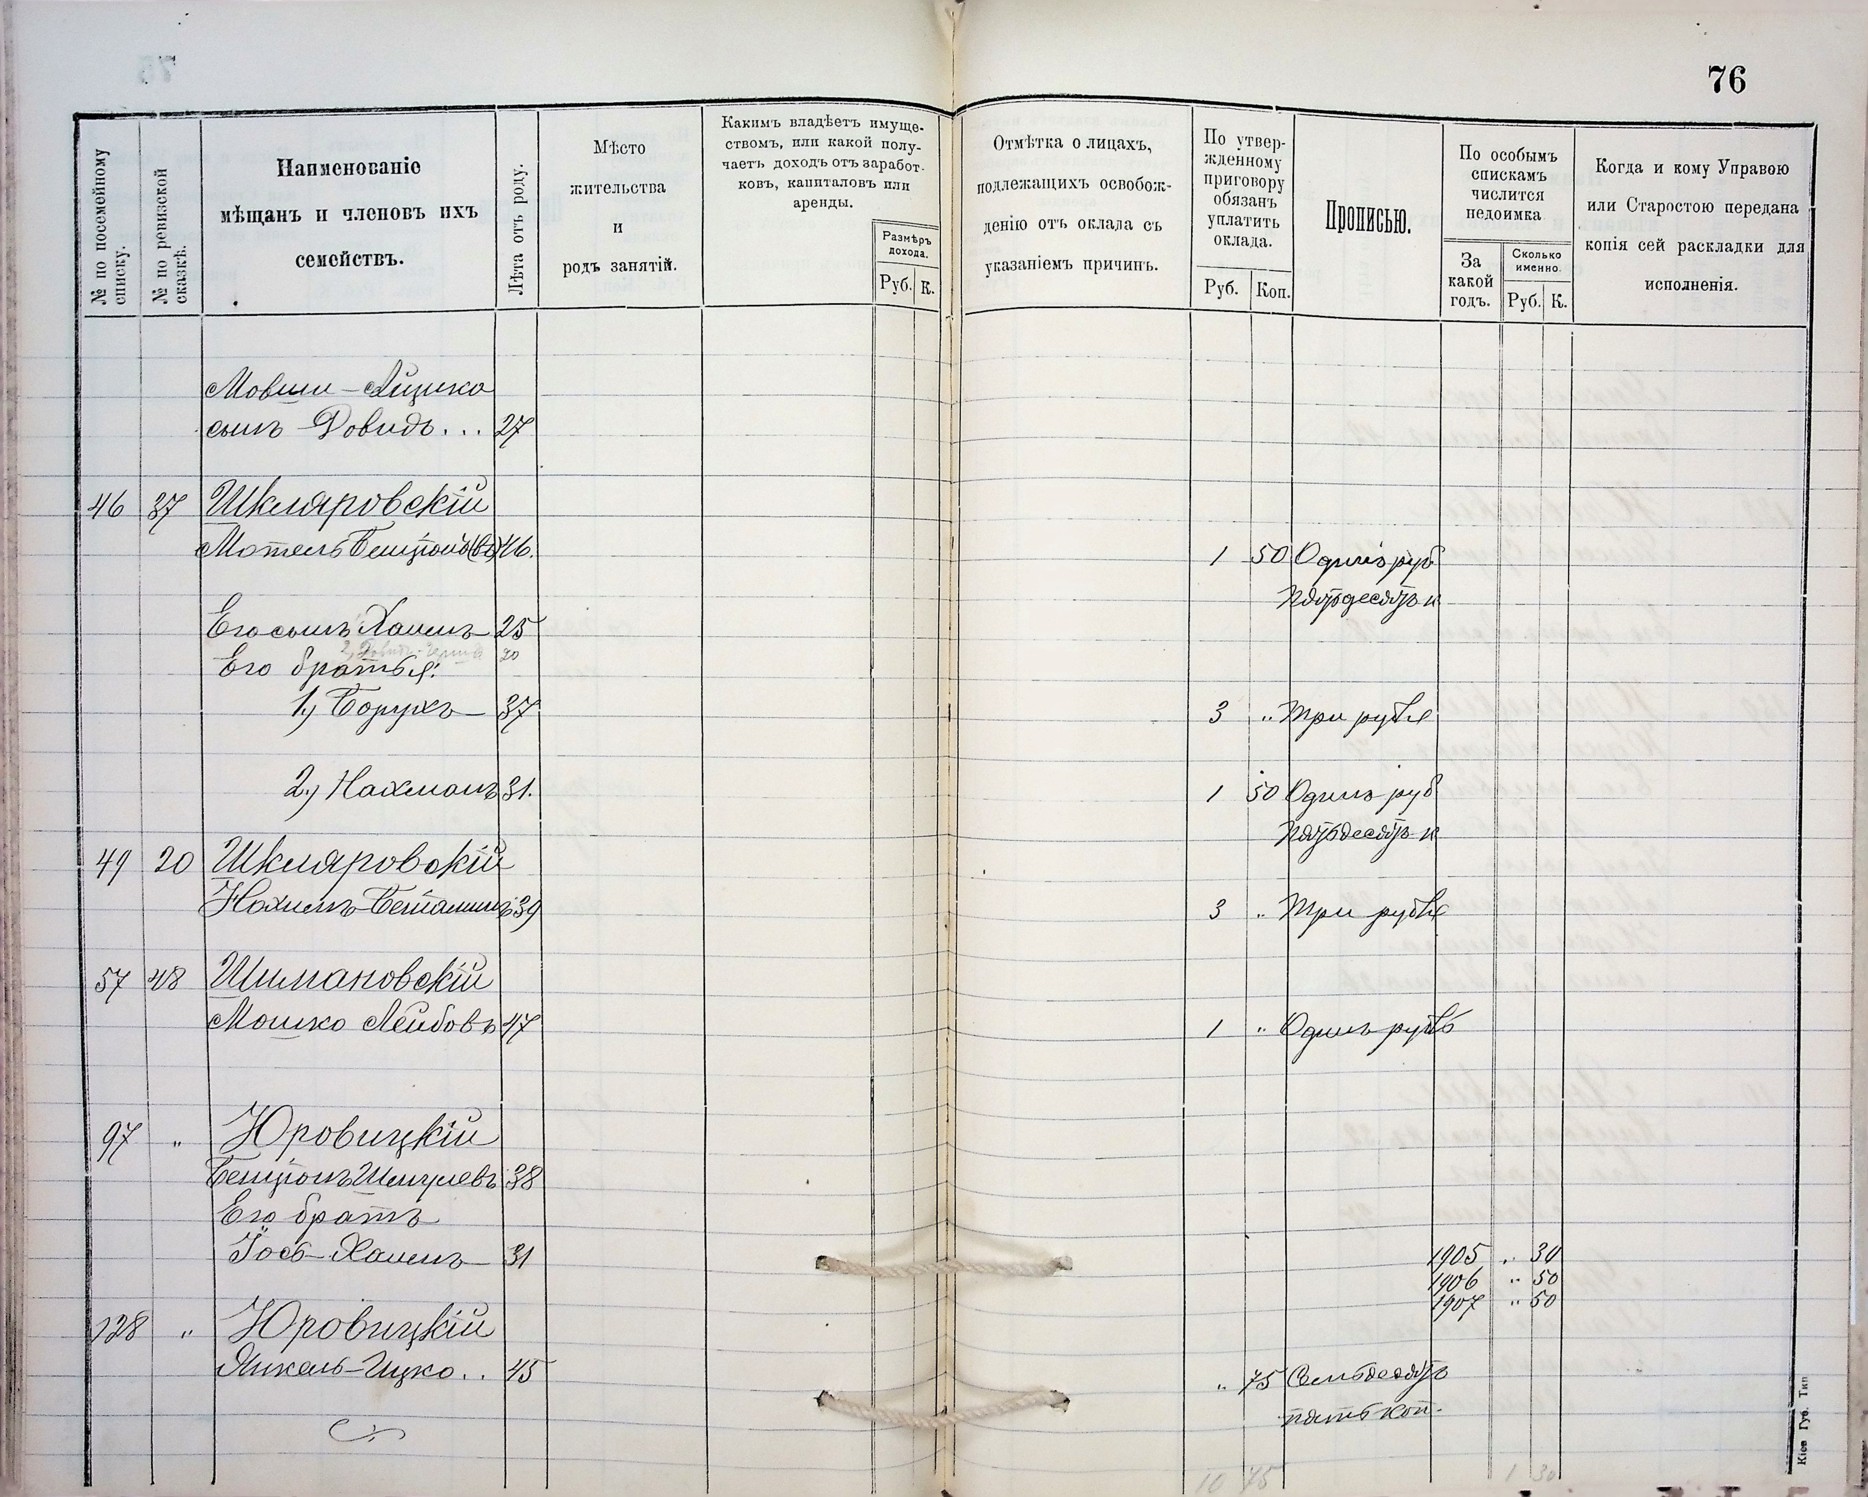 76
№ по посемейному списку.
№ по ревизской сказкѣ.
Наименованіе
мѣщанъ и членовъ ихъ
семействъ.
Лѣта отъ роду.
Мѣсто
жительства
и
родъ занятій.
Какимъ владѣетъ имуще-
ствомъ, или какой полу-
чаетъ доходъ отъ заработ-
ковъ, капиталовъ или
аренды.
Размѣръ
дохода.
Руб. К.
Отмѣтка о лицахъ,
подлежащихъ освобож-
денію отъ оклада съ
указаніемъ причинъ.
По утвер-
жденному
приговору
обязанъ
уплатить
оклада.
Руб. Коп.
Прописью.
По особымъ
спискамъ
числится
недоимка
За
какой
годъ.
Сколько
именно.
Руб. К.
Когда и кому Управою
или Старостою передана
копія сей раскладки для
исполненія.
Мовши-Айцика
сынъ Довидъ... 27
46 37 Шкляровскій
Мотель Бенціоновъ 46. 1 50 Одинъ руб
пятьдесятъ к
Его сынъ Хаимъ 25
20
Его братья:
1) Борухъ 37 3 " Три рубля
2) Нахманъ 31. 1 50 Одинъ руб
пятьдесятъ к
49 20 Шкляровскій
Нахимъ Беніаминъ 39 3 " Три рубля
57 48 Шимановскій
Мошко Лейбовъ 47 1 " Одинъ рубль
97 " Юровицкій
Бенціонъ Шмулевъ 38
Его братъ
Іось-Хаимъ 31 1905 " 30
1906 " 50
1907 " 50
128 " Юровицкій
Янкель-Ицко.. 45 " 75 Семьдесятъ
пять коп.
10 75 1 30
Кіев Губ. Тип